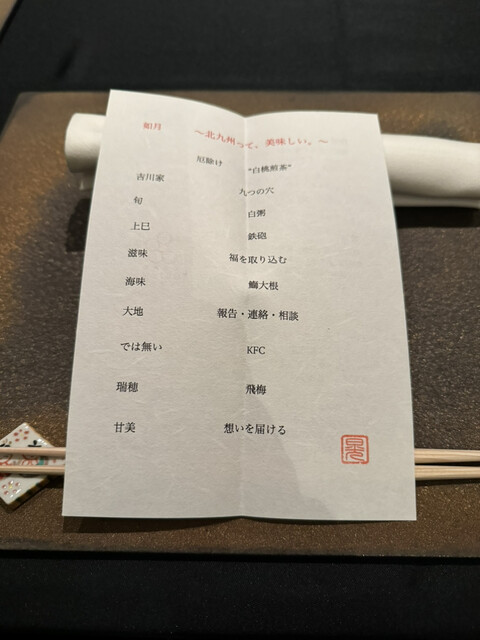 如月 ～北九州って、美味しい。～
厄除け “白桃煎茶”
吉川家 九つの穴
旬 白粥
上巳 鉄砲
滋味 福を取り込む
海味 鰤大根
大地 報告・連絡・相談
では無い KFC
瑞穂 飛梅
甘美 想いを届ける